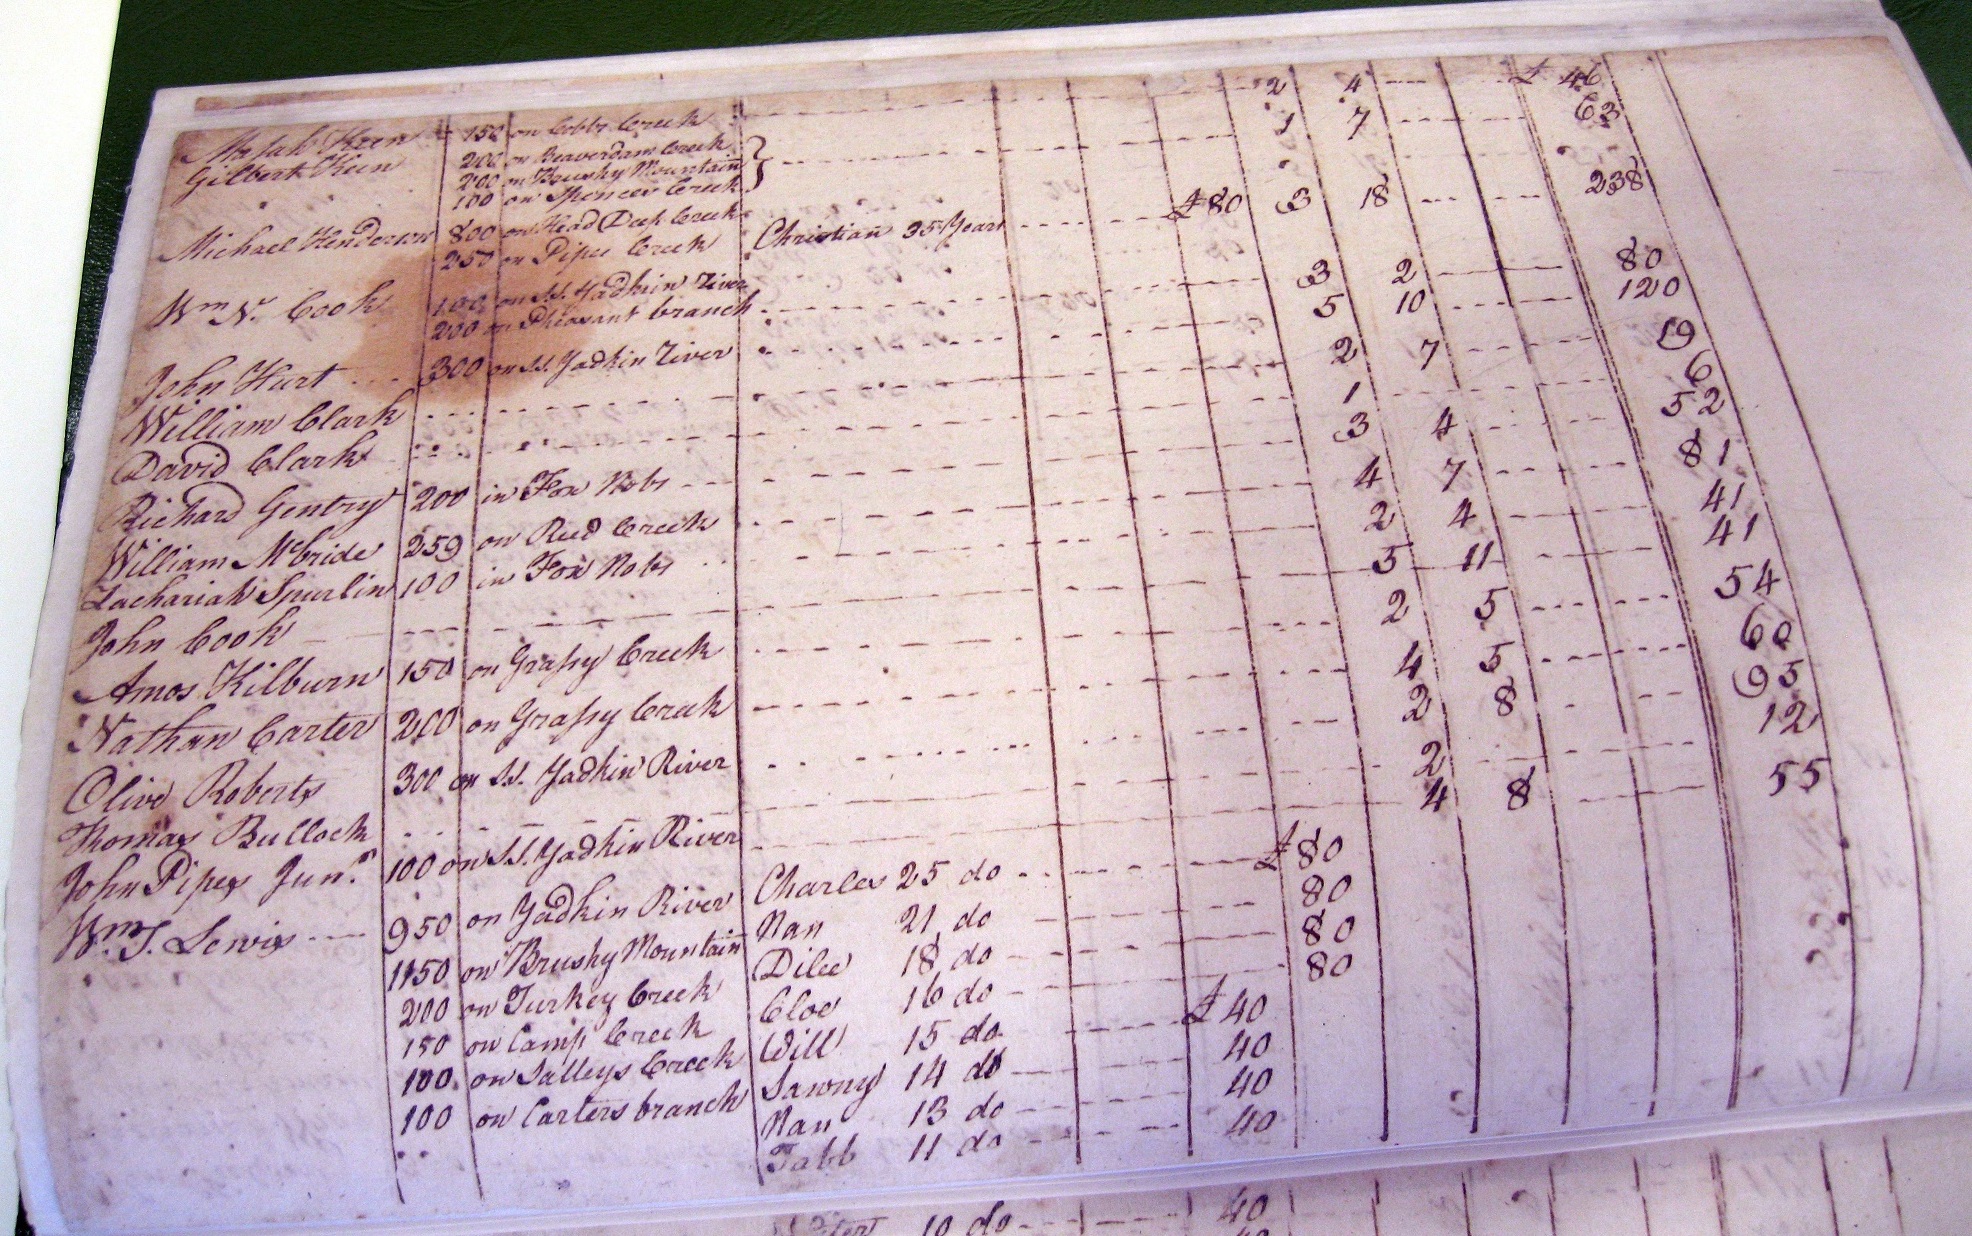 Keen 150 on Cobbs Creek 2 4 £ 46
Gilbert Keen 200 on Beaverdam Creek 1 7 63
200 on Brushy Mountain
100 on Spencer Creek
Michael Henderson 800 on Head Deep Creek Christian 35 Years £80 3 18 238
250 on Pipes Creek
Wm N. Cook 100 on S.S. Yadkin River 3 2 80
200 on Pheasant branch 5 10 120
John Hurt 300 on S.S. Yadkin River 2 7 19
William Clark 1 6
David Clark 3 4 52
Richard Gentry 200 in Fox Nobs 4 7 81
William Mcbride 259 on Reed Creek 2 4 41
Zachariah Spurlin 100 in Fox Nobs 5 11 41
John Cook 2 5 54
Amos Kilburn 150 on Grassy Creek 4 5 60
Nathan Carter 200 on Grassy Creek 2 8 95
Olive Roberts 300 on S.S. Yadkin River 2 12
Thomas Bullock 4 8 55
John Pipes Junr. 100 on S.S. Yadkin River
Wm. T. Lewis 950 on Yadkin River Charles 25 do £80
1150 on Brushy Mountain Nan 21 do 80
200 on Turkey Creek Dilce 18 do 80
150 on Camp Creek Cloe 16 do 80
100 on Salleys Creek Will 15 do £40
100 on Carters branch Sawny 14 do 40
Nan 13 do 40
Tabb 11 do 40
10 do 40